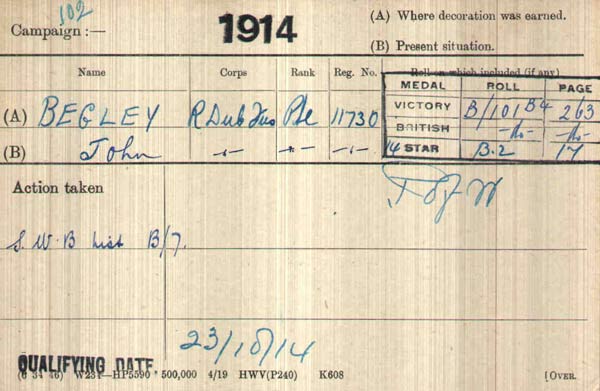 102
Campaign :—
1914
(A) Where decoration was earned.
(B) Present situation.
Name Corps Rank Reg. No. Roll on which included (if any)
MEDAL ROLL PAGE
(A) BEGLEY R Dub Fus Pte 11730
VICTORY B/101 B4 263
BRITISH -do- -do-
(B) John -"- -"- -"-
14 STAR B.2 17
Action taken
S.W.B List B/7.
23/10/14
QUALIFYING DATE
(6 34 46) W234—HP5590 500,000 4/19 HWV(P240) K608 [OVER.